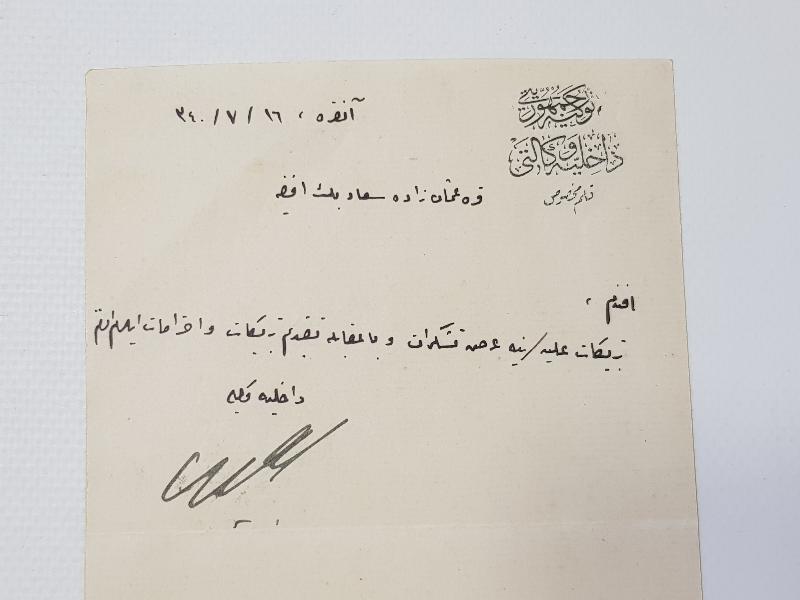 توركيه جمهوريتى
داخليه وكالتى
قلم مخصوص
آنقره ، ١٦ / ٧ / ٣٤٠
قره عثمان زاده سعاد بك افندى يه
افندم ،
تبريكات عليه لرينه عرض تشكرات و بالمقابله تقديم تبريكات و احترامات ايلرم افندم
داخليه وكيلى